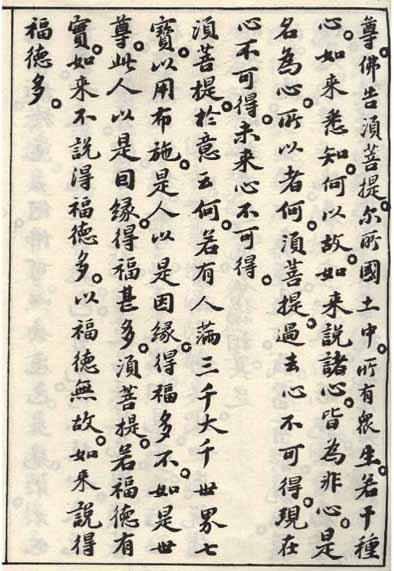 尊。佛告須菩提。尔所國土中。所有衆生。若干種
心。如来悉知。何以故。如来説諸心。皆為非心。是
名為心。所以者何。須菩提。過去心不可得。現在
心不可得。未来心不可得。
須菩提。於意云何。若有人满三千大千世界七
寳。以用布施。是人以是因縁。得福多不。如是世
尊。此人以是因縁。得福甚多。須菩提。若福德有
實。如来不説得福德多。以福德無故。如来説得
福德多。